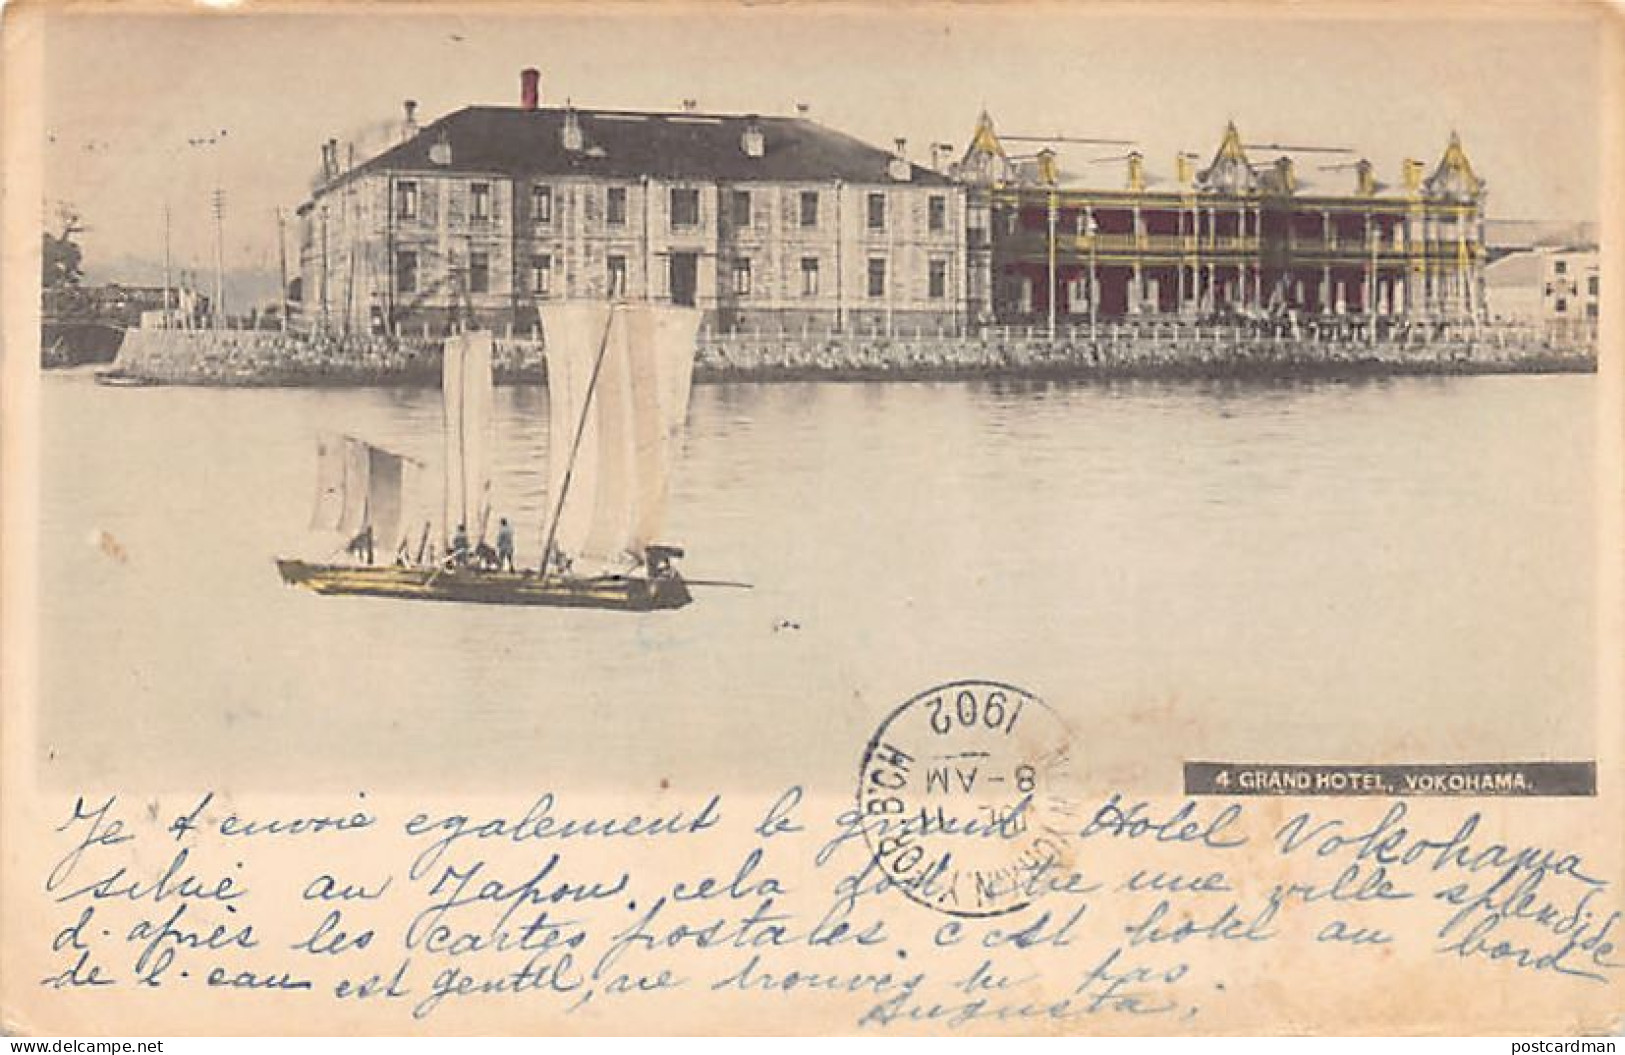 4 GRAND HOTEL, YOKOHAMA.
1902
8-AM
11
N.Y. FOR. B'CH
Je t'envoie egalement le grand Hotel Yokohama
situé au Japon. cela doit être une ville splendide
d'après les cartes postales. c'est hotel au bord
de l'eau est gentil, ne trouves tu pas
Augusta.
www.delcampe.net
postcardman